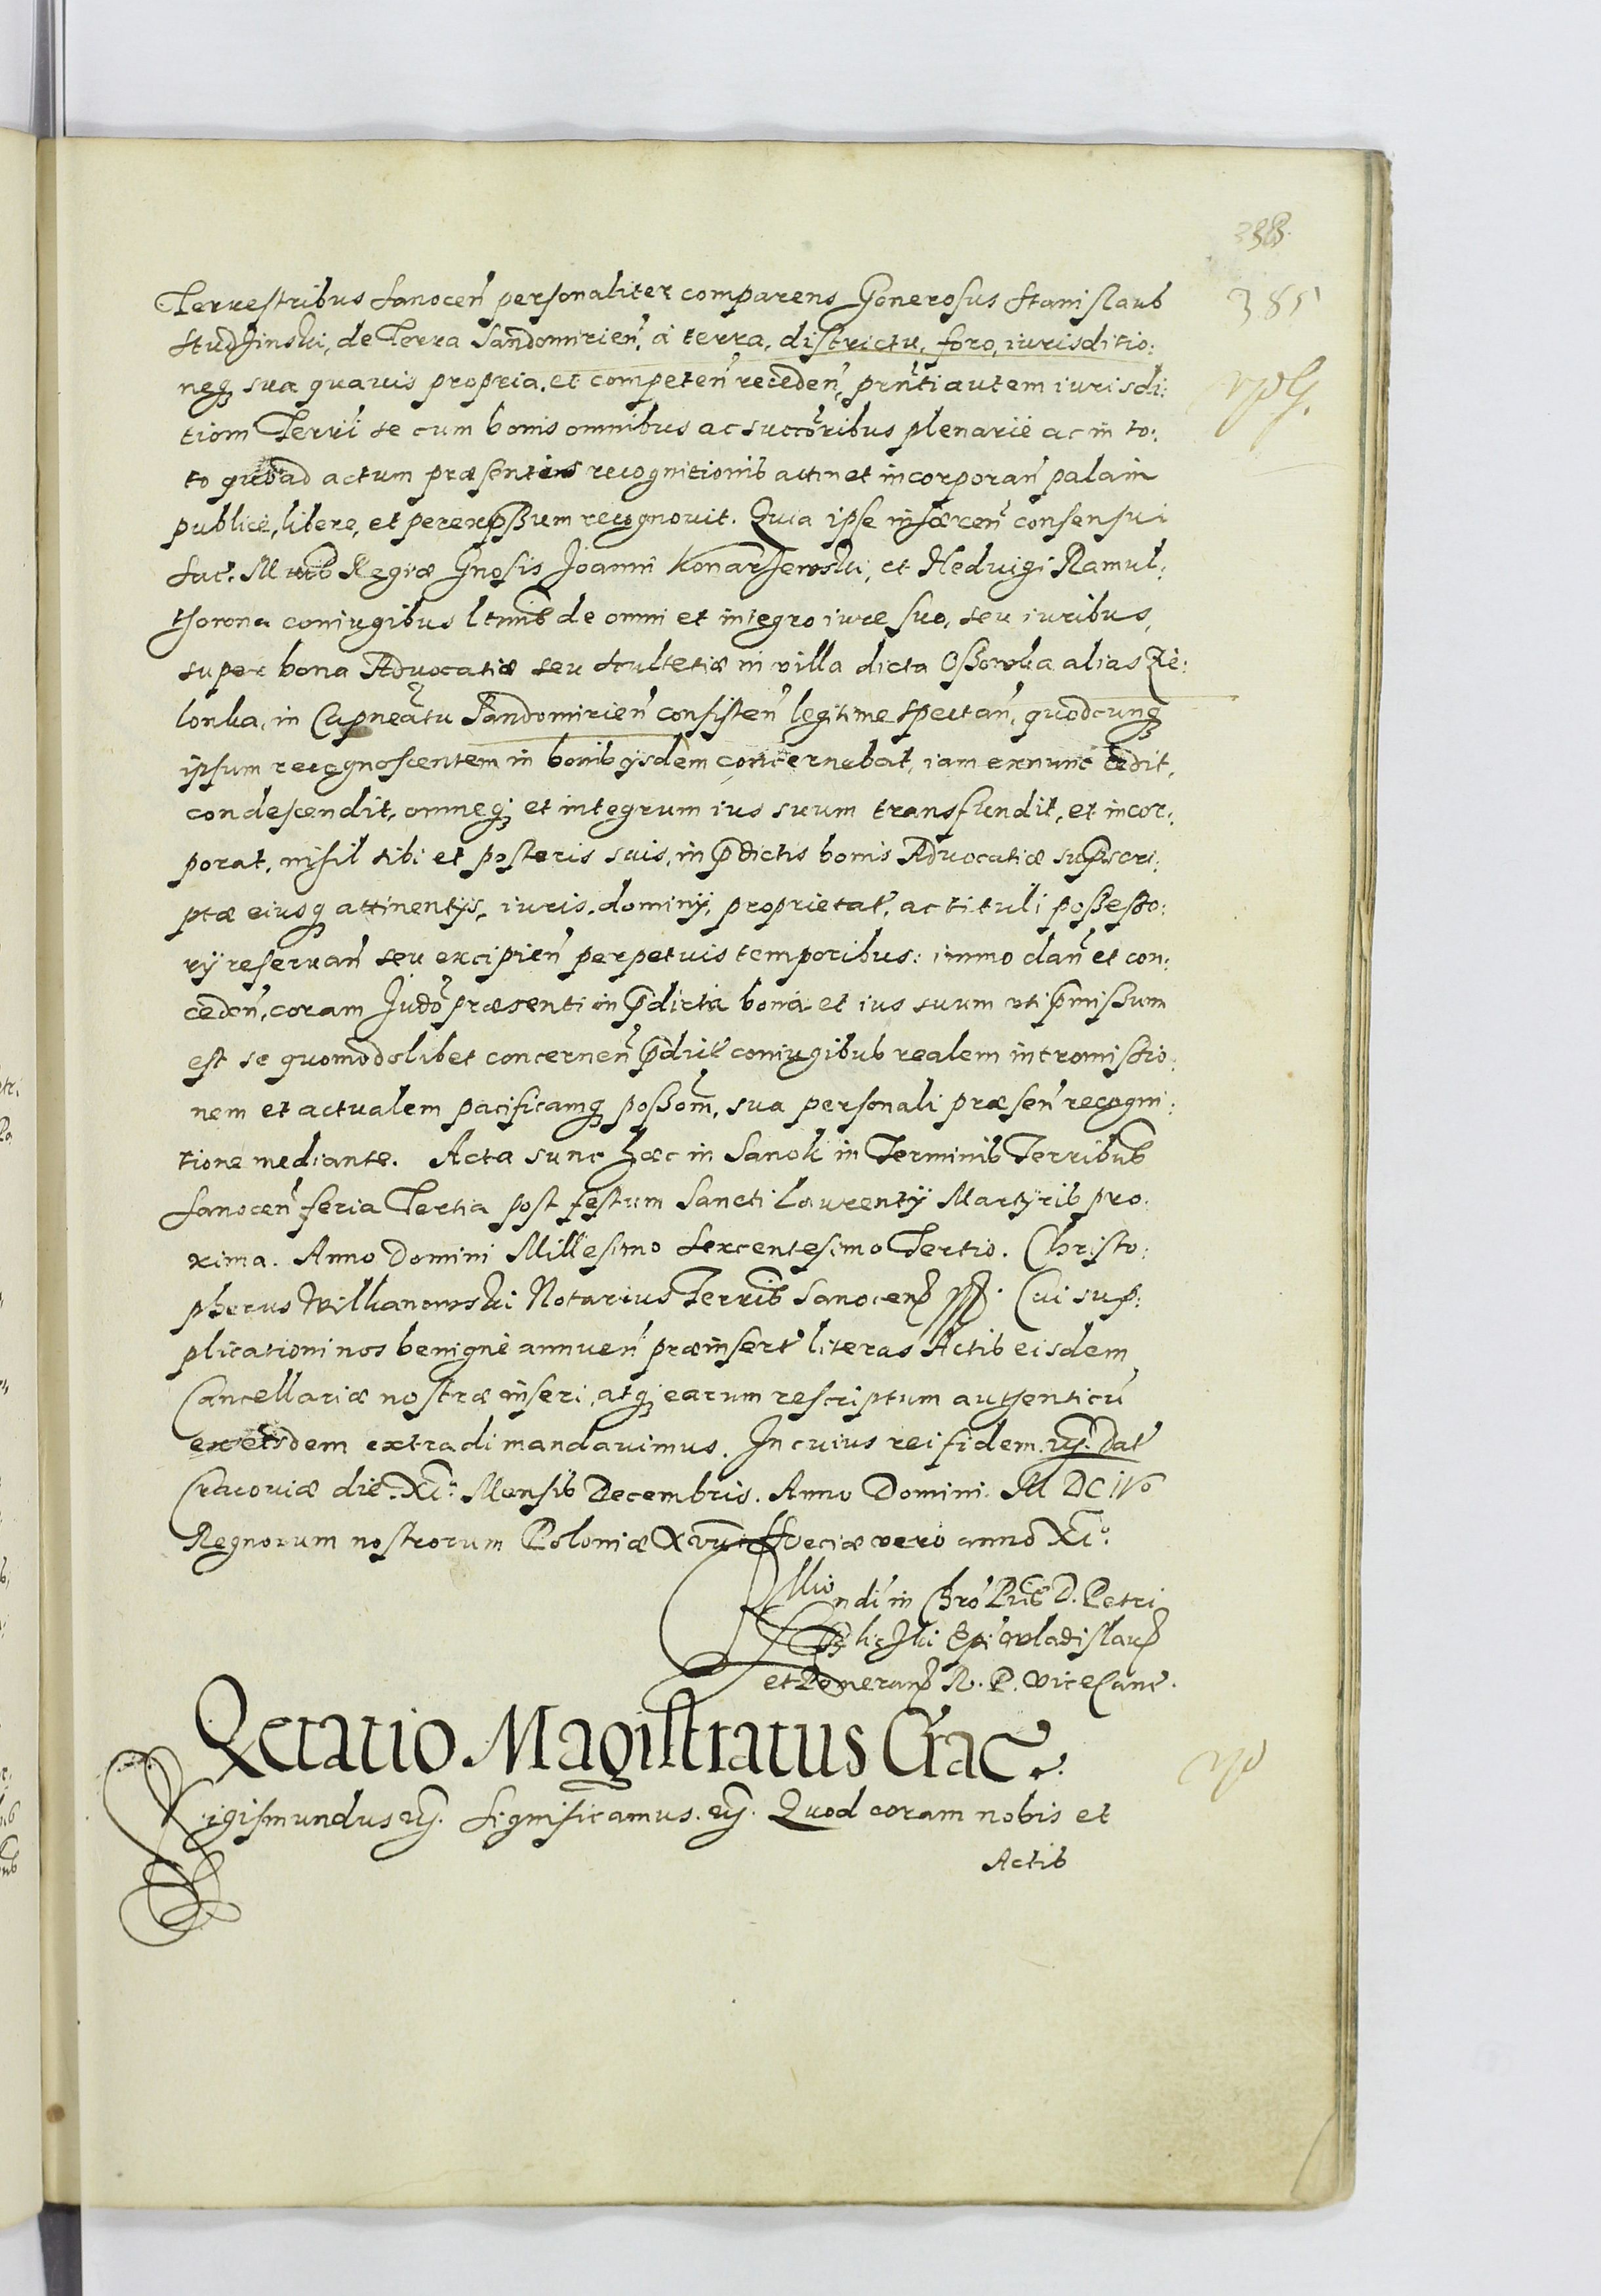 385
Terrestribus Sanocen̄ personaliter comparens Generosus Stanislaus
Studzinski, de Terra Sandomirien̄, a terra, districtu, foro, iurisditio:
neq̃ sua quavis propria, et competen̄ receden̄, prn̄ti autem iurisdi:
tioni Terrī se cum bonis omnibus ac succōribus plenariè ac in to:
to quo ad actum præsentis recognitionis attinet incorporan̄ palam
publicè, libere, et per expressum recognovit. Quia ipse inhæren̄ consensui
Sac. Mttis Regiæ Gnosis Joanni Konarzewski, et Hedvigi Ramul:
thowna coniugibus ltimis de omni et integro iure suo, seu iuribus,
super bona Advocatiæ seu Scultetiæ in villa dicta Ossowka alias Zie:
lonka, in Capneātu Sandomirien̄ consisten̄ legitime spectan̄, quodcunq̃
ipsum recognoscentem in bonis ijsdem concernebat, iam exnunc cedit,
condescendit, omneq̃ et integrum ius suum transfundit, et incor:
porat, nihil sibi et posteris suis, in p̄dictis bonis Advocatiæ sup̄scri:
ptæ eiusq̃ attinentijs, iuris, dominij, proprietat̄, ac tituli possesso:
rij reservan̄ seu excipien̄ perpetuis temporibus: immo dan̄ et con:
ceden̄, coram Judō præsenti in p̄dicta bona et ius suum uti p̄missum
est se quomodolibet concernen̄ p̄dict̄ coniugibus realem intromissio:
nem et actualem pacificamq̃ possom̄, sua personali præsen̄ recogni:
tione mediante. Acta sunt hæc in Sanok in Terminis Terribus
Sanocen̄ feria Tertia post festum Sancti Laurentij Martyris pro:
xima. Anno Domini Millesimo Sexcentesimo Tertio. Christo:
pherus Wilkanowski Notarius Terris Sanocen̄ ssp. Cui sup:
plicationi nos benignè annuen̄ præinsert̄ literas Actis eisdem
Cancellariæ nostræ inseri, atq̃ earum rescriptum authenticū
ex eisdem extradi mandavimus. In cuius rei fidem. ꝛc. Dat̄
Cracoviæ die. XI. Mensis Decembris. Anno Domini. M DC IVo
Regnorum nostrorum Poloniæ XVII Sveciæ vero anno XI.
Rn̄di in Chrō Pris D. Petri
Tylicki Epi Wladislaw̄
et Pomeran̄ R. P. ViceCanc.
Qctatio Magistratus Crac̄.
Sigismundus ꝛc. Significamus. ꝛc. Quod coram nobis et
Actis